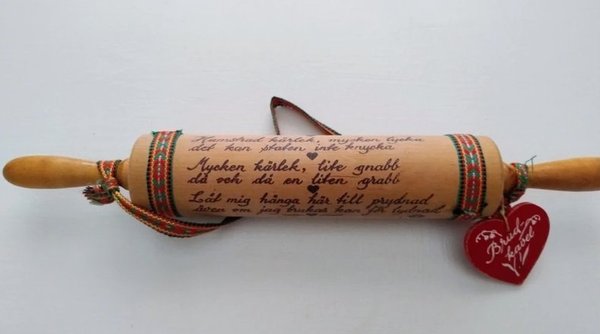 kärlek, mycken lycka
det kan staten inte knycka
Mycken kärlek, lite gnabb
då och då en liten grabb
Låt mig hänga här till prydnad
även om jag brukas kan för lydnad
Brud
kavel